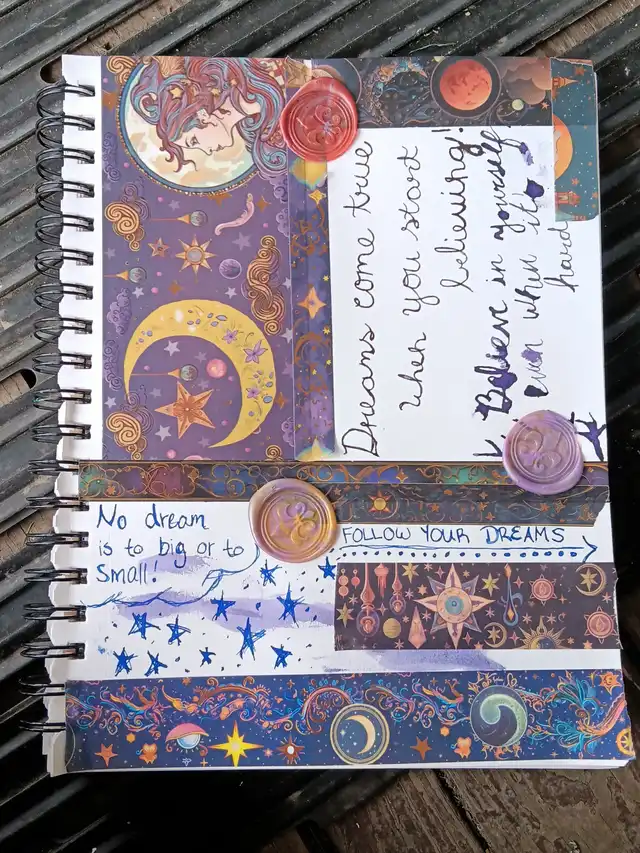 Dreams come true
when you start
believing!
Believe in yourself
even when it's
hard
No dream
is to big or to
Small!
FOLLOW YOUR DREAMS